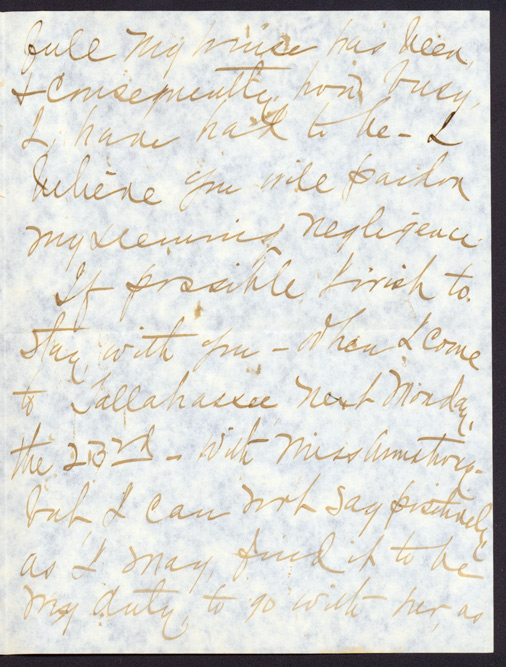 full my mind has been,
& consequently, how busy,
I, have had to be - I
believe you will pardon
my seeming negligence
If possible, I wish to
stay, with you - when I come
to Tallahassee next Monday,
the 23rd - with Miss Armstrong -
but I can not say positively
as I may find it to be
my duty, to go with her, as